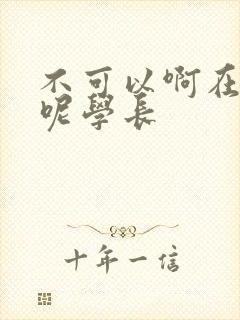 不可以啊在
呢學長
十年一信